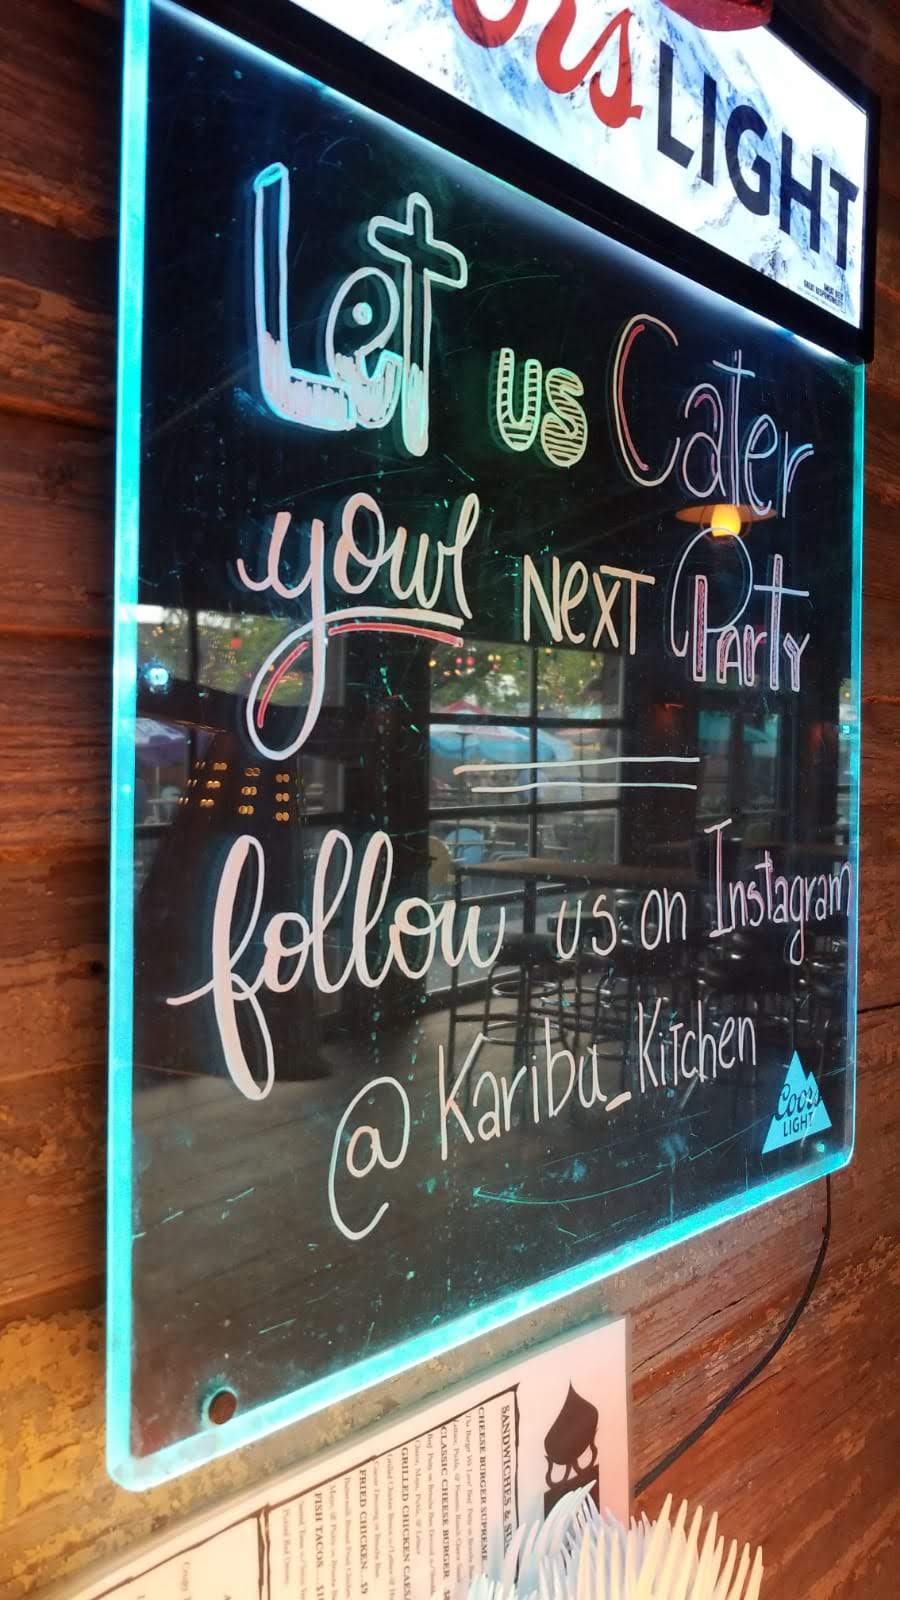 ors
LIGHT
Let us Cater
your Next Party
follow us on Instagram
@Karibu_Kitchen
Coors
LIGHT
SANDWICHES &
CHEESE BURGER SUPREME
CLASSIC CHEESE BURGER
GRILLED CHICKEN CAESA
FRIED CHICKEN...$9
FISH TACOS